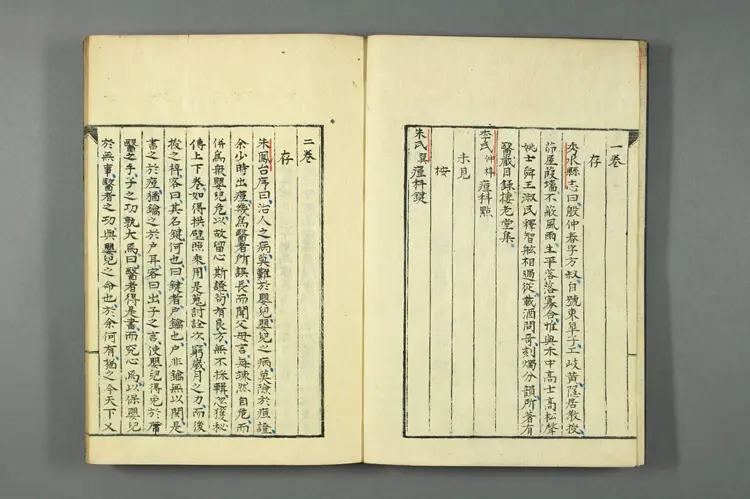 一卷
存
秀水縣志曰殷仲春字方叔自號東臯子工岐黃隱居教授
茆屋葭墻不蔽風雨生平落落寡合惟與禾中高士高松聲
姚士舜王淑民釋智舷相過從載酒問奇刻燭分韻所著有
醫藏目錄棲老堂集
李氏仲梓痘科㸃
未見
按
朱氏巽痘科鍵
二卷
存
朱鳳台序曰治人之病莫難於嬰兒嬰兒之病莫險於痘證
余少時出痘幾爲醫者所誤長而聞父母言每竦然自危而
併爲衆嬰兒危以故留心斯證苟有良方無不採輯忽獲秘
傳上下卷如得拱璧照乘用是蒐討詮次窮歲月之力而後
授之梓客曰其名鍵何也曰鍵者戶鑰也戶非鑰無以閉是
書之於痘猶鑰之於戶耳客曰出子之言使嬰兒得免於庸
醫之手子之功孰大焉曰醫者得是書而究心焉以保嬰兒
於無事醫者之功與嬰兒之命也於余何有猶之今天下又